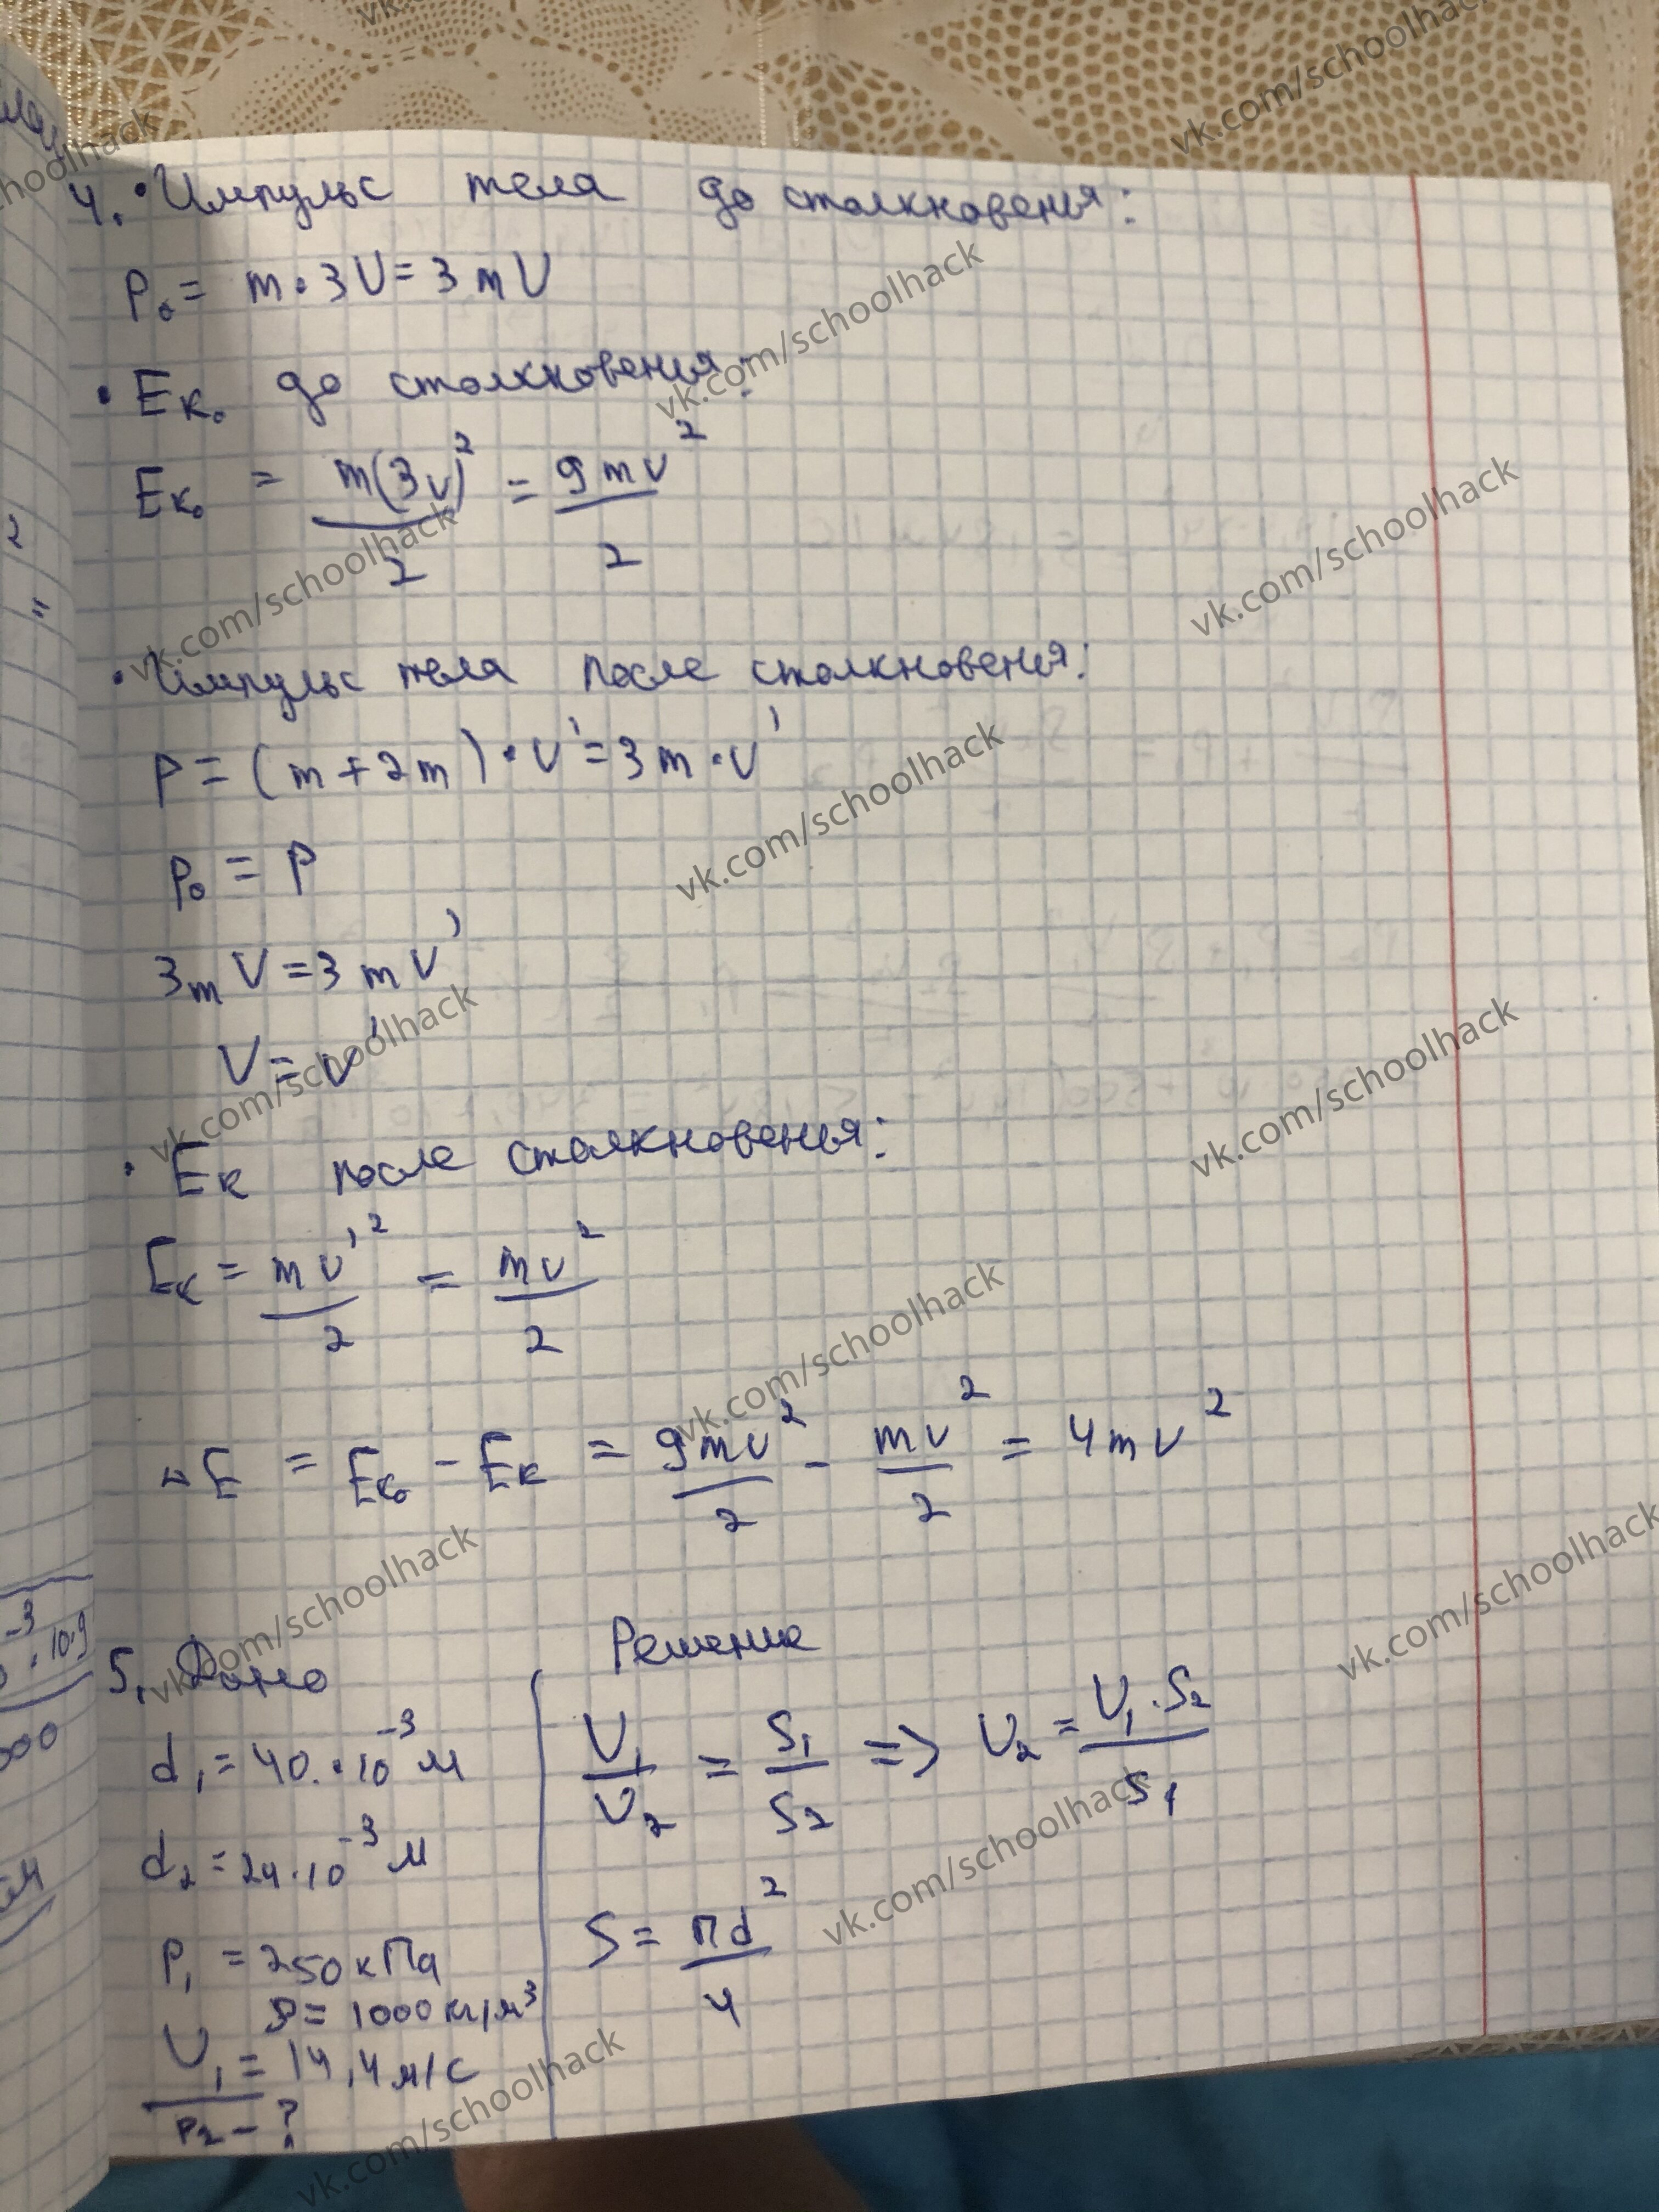 4. • Импульс тела до столкновенья:
P₀ = m • 3V = 3 mV
• Eк₀ до столкновенья:
Eк₀ = m(3v)²/2 = 9mv²/2
• Импульс тела после столкновенья:
P = (m + 2m) • v' = 3m • v'
P₀ = P
3mV = 3mV'
V = v'
• Eк после столкновенья:
Eк = mv'²/2 = mv²/2
▵E = Eк₀ - Eк = 9mv²/2 - mv²/2 = 4mv²
5. Дано
Решение
d₁ = 40 • 10⁻³ м
U₁/U₂ = S₁/S₂ => U₂ = U₁ · S₂/S₁
d₂ = 24 · 10⁻³ м
S = πd²/4
P₁ = 250 кПа
ρ = 1000 кг/м³
U₁ = 14,4 м/с
P₂ - ?
vk.com/schoolhack
vk.com/schoolhack
vk.com/schoolhack
vk.com/schoolhack
vk.com/schoolhack
vk.com/schoolhack
vk.com/schoolhack
vk.com/schoolhack
vk.com/schoolhack
vk.com/schoolhack
vk.com/schoolhack
vk.com/schoolhack
vk.com/schoolhack